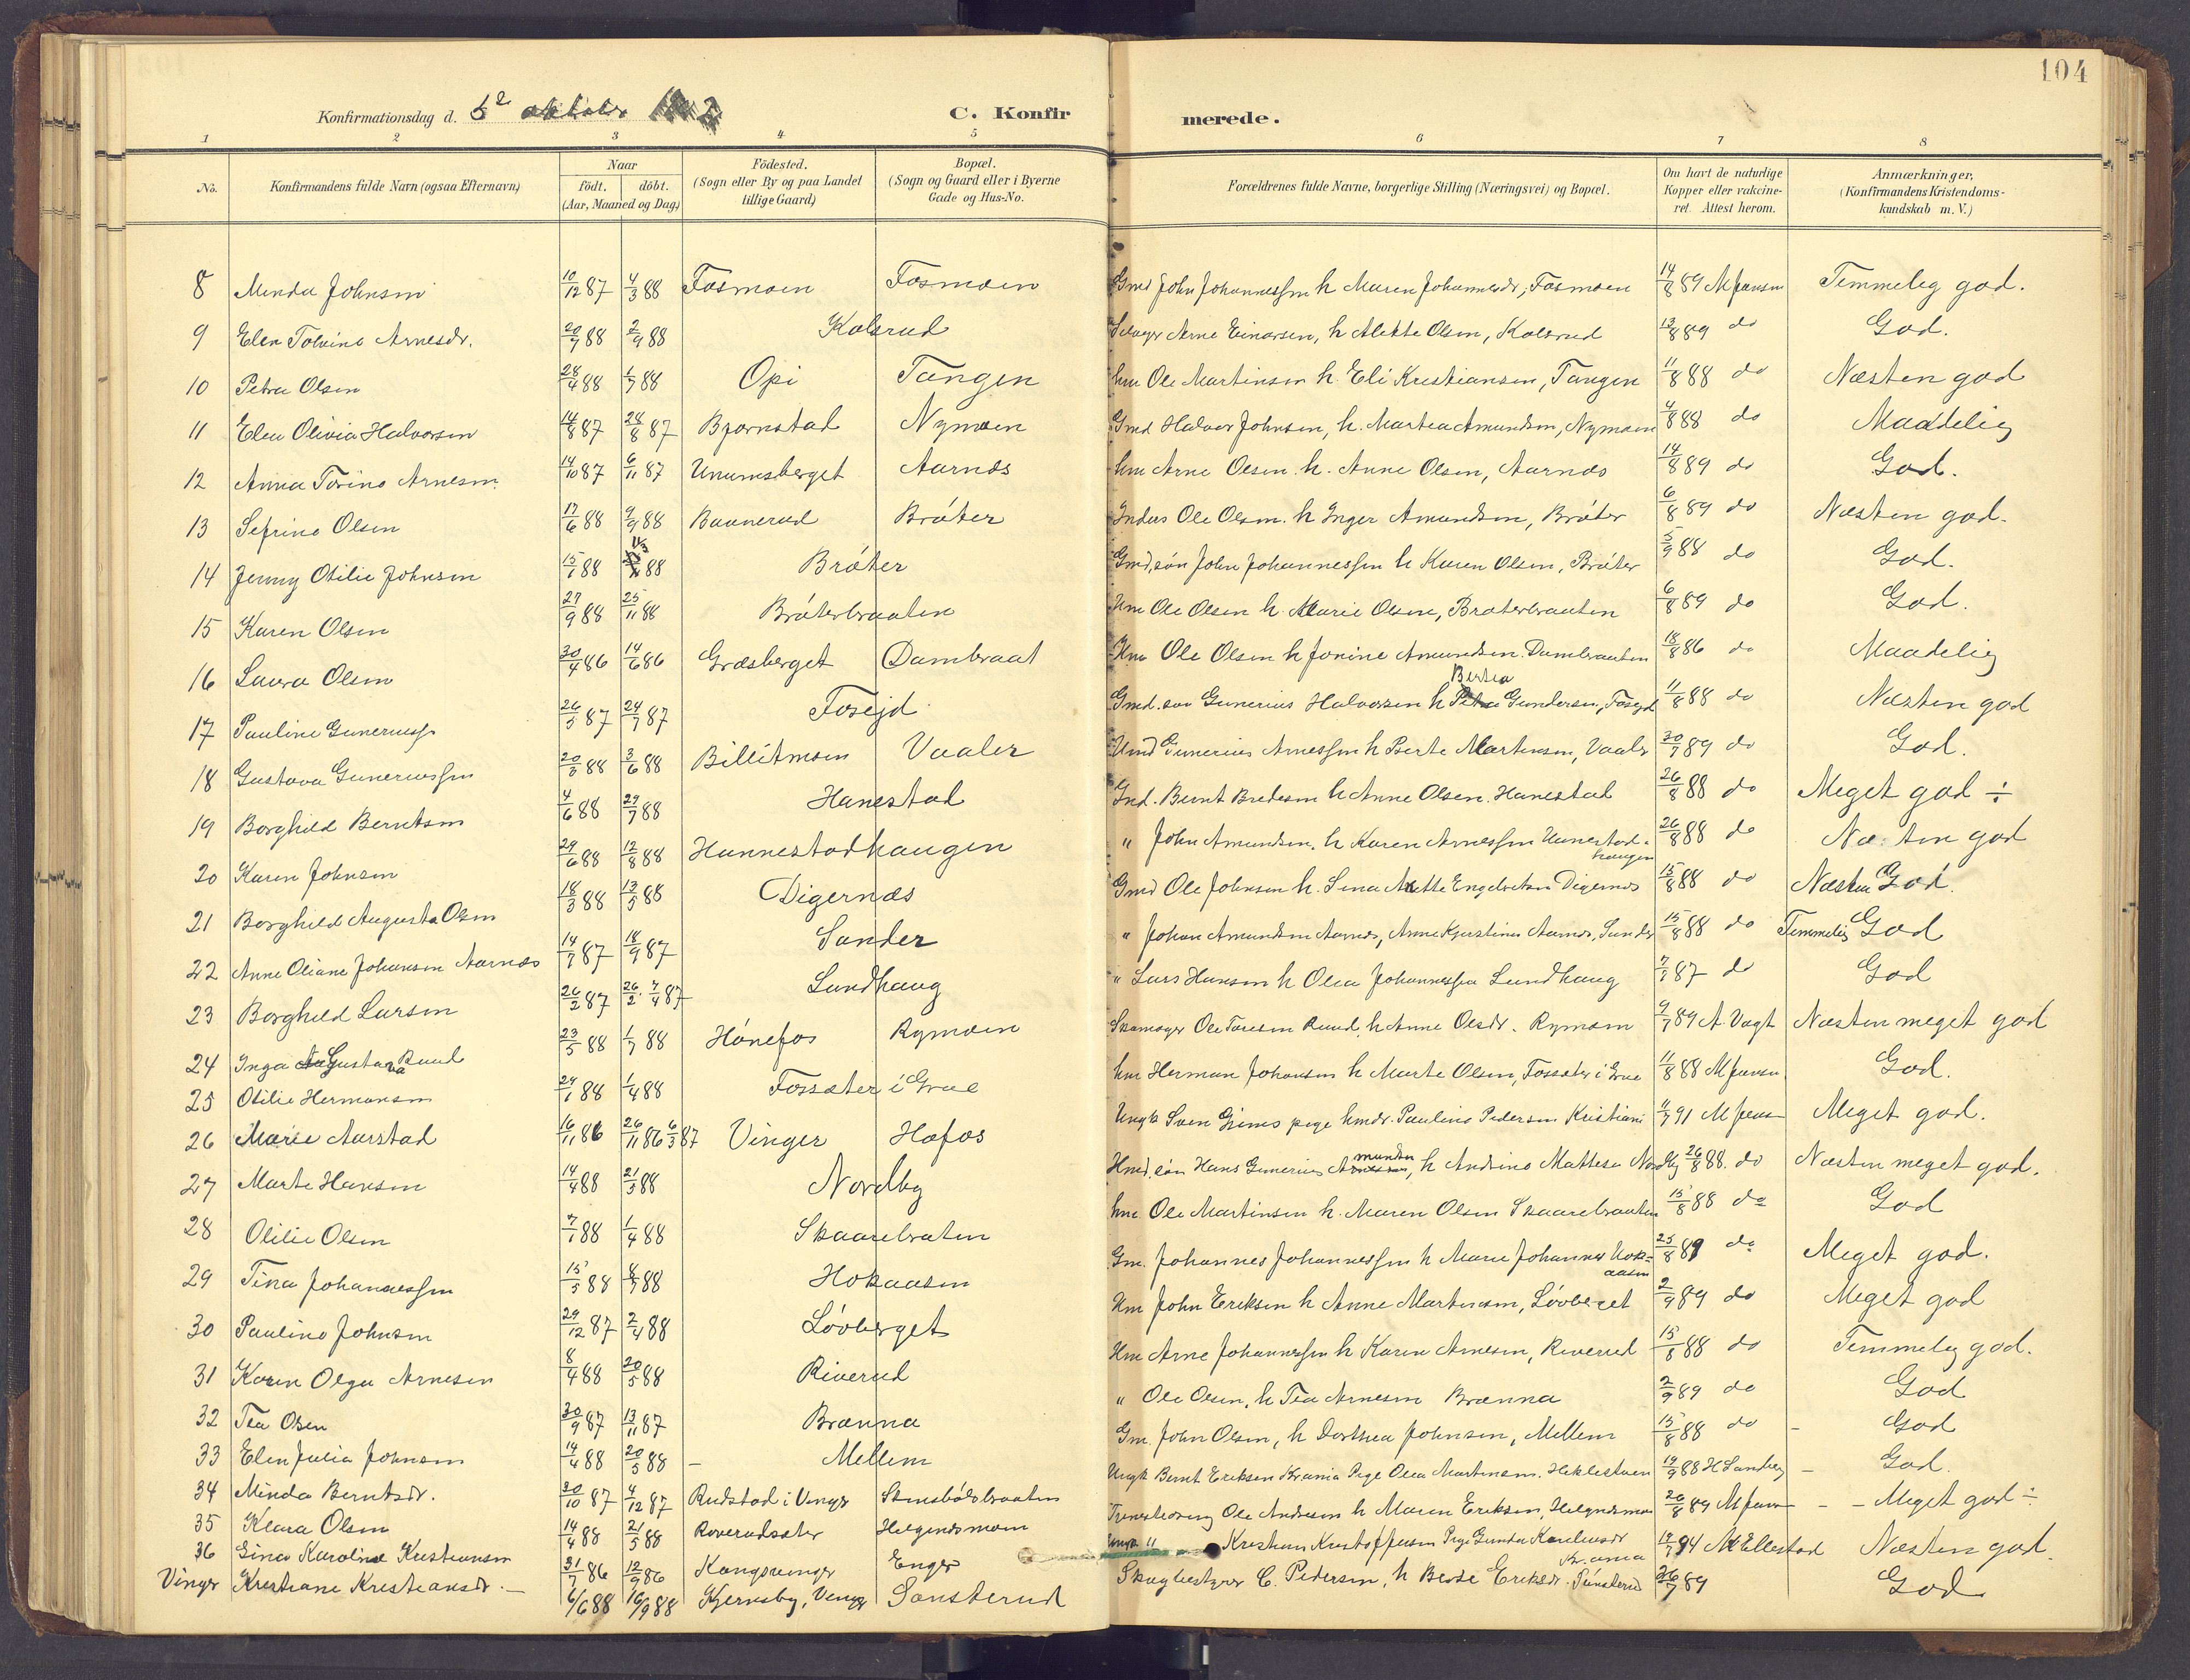 104
Konfirmationsdag d. 5 oktober
C. Konfirmerede.
1 2 3 4 5 6 7 8
No. Konfirmandens fulde Navn (ogsaa Efternavn) Naar födt. döbt. (Aar, Maaned og Dag) Födested. (Sogn eller By og paa Landet tillige Gaard) Bopæl. (Sogn og Gaard eller i Byerne Gade og Hus-No. Forældrenes fulde Navne, borgerlige Stilling (Næringsvei) og Bopæl. Om havt de naturlige Kopper eller vakcineret. Attest herom. Anmærkninger, (Konfirmandens Kristendomskundskab m. V.)
8 Minda Johnsen 10/12 87 4/3 88 Fosmoen Fosmoen Gmd John Johannessen h Maren Johannesdr, Fosmoen 14/8 89 M Jensen Temmelig god.
9 Elen Arnesdr. 20/7 88 2/9 88 Kolsrud Arne Einarsen, h Alette Olsen, Kolsrud 13/8 89 do God.
10 Petra Olsen 28/4 88 1/7 88 Opi Tangen hm Ole Martinsen h. Eli Kristiansen, Tangen 11/8 88 do Næsten god
11 Elen Olivia Halvorsen 14/8 87 28/8 87 Bjørnstad Nymoen Gmd Halvor Johnsen, h. Martea Amundsen, Nymoen 4/8 88 do Maadelig
12 Anna Arnesen 14/10 87 6/11 87 Aarnæs hm Arne Olsen h. Anne Olsen, Aarnæs 14/8 89 do God.
13 Sefrine Olsen 17/6 88 9/9 88 Baunerud Bråter Inders Ole Olsen. h Inger Amundsen, Bråter 6/8 89 do Næsten god.
14 Jenny Otilie Johnsen 15/1 88 11/3 88 Bråter Gmd, søn John Johannessen h Karen Olsen, Bråter 5/9 88 do God.
15 Karen Olsen 27/9 88 25/11 88 Bråterbraaten Hm Ole Olsen h. Marie Olsen, Braterbraaten 6/8 89 do God.
16 Laura Olsen 30/4 86 14/6 86 Græsberget Dambraat Hm Ole Olsen h Jonine Amundsen. Dambraaten 18/8 86 do Maadelig
17 Pauline Gunerius 26/5 87 24/7 87 Fosejd Gmd. søn Gunerius Halvorsen h Bertea Gundersen, Fosejd 11/8 88 do Næsten god
18 Gustava Guneriussen 20/3 88 3/6 88 Billitmoen Vaaler Gunerius Arnessen h Berte Martinsen, Vaaler 30/7 89 do God.
19 Borghild Berntsen 4/6 88 29/7 88 Hanestad Gmd. Bernt Bredesen h Anne Olsen. Hanestad 26/8 88 do Meget god ÷
20 Karen Johnsen 29/6 88 12/8 88 Hannestadhaugen " John Amundsen. h Karen Arnessen Hannestadhaugen 26/8 88 do Næsten god
21 Borghild Augusta Olsen 18/3 88 13/5 88 Digernæs Gmd Ole Johnsen h. Lina Anette Engebretsen Digernæs 15/8 88 do Næsten God.
22 Anne Oliane Johansen Aarnæs 14/7 87 18/9 87 Sander " Johan Amundsen Aarnæs, Anne Kjerstine Aarnæs. Sander 15/8 88 do Temmelig God
23 Borghild Larsen 26/2 87 26/2. 7/4 87 Lundhaug " Lars Hansen h Olea Johannessen Lundhaug 87 do God
24 Inga Gustava Ruud 23/5 88 1/7 88 Hönefos Rymoen Ole Toresen Ruud, h Anne Olsdr. Rymoen 9/7 89 A. Vagt Næsten meget god
25 Otilie Hermansen 24/1 88 1/4 88 Fossæter i Grue hm Herman Johansen h Marte Olsen, Fossæter i Grue 11/8 88 M Jensen God.
26 Marie Aarstad 16/11 86 26/11 86 6/3 87 Vinger Hafos Ungk Sven Grims pige hmdr. Pauline Pedersen Kristiani 91 M Jensen Meget god.
27 Marte Hansen 14/4 88 21/5 88 Nordby Hmd, søn Hans Gunerius Amundsen, h Andrine Mattesen Nordby 26/8 88. do Næsten meget god.
28 Otilie Olsen 7/1 88 1/4 88 Skaarebraten hm Ole Martinsen h. Maren Olsen Skaarebraaten 15/8 88 do God
29 Tina Johannessen 15/5 88 8/7 88 Hokaasen Gm. Johannes Johannessen h Marie Johannes Hokaasen 25/8 89 do Meget god.
30 Pauline Johnsen 29/12 87 2/4 88 Lövberget Hm John Eriksen h Anne Martinsen, Lövberget 2/9 89 do Meget god
31 Karen Olga Arnesen 8/4 88 20/5 88 Riverud Hm Arne Johannessen h Karen Arnesen, Riverud 15/8 88 do Temmelig god.
32 Tea Olsen 30/9 87 13/11 87 Brænna " Ole Olsen, h Tea Arnesen Brænna 2/9 89 do God
33 Elen Julia Johnsen 14/4 88 20/5 88 – Mellem Gm. John Olsen, h Dorthea Johnsen, Mellem 15/8 88 do – God
34 Minda Berntsdr. 30/10 87 4/12 87 Rudstad i Vinger Ungk Bernt Eriksen Krania Pige Olea Martinsen. 19/9 88 H Sandbey – God.
35 Klara Olsen 14/4 88 21/5 88 Roverudsæter Helgendsmoen Ole Andresen h Maren Eriksen, Helgendsmoen 26/8 89 M Jensen – – Meget god ÷
36 Gina Karoline Kristiansen 31/7 86 12/9 86 Kongsvinger Enger Ungk " Kristian Kristoffersen Pige Gunda Karelius dr Kr.ania 94 M Ellestad Næsten god.
Vinger Kristiane Kristiansdr. – 6/6 88 16/9 88 Kjernsby, Vinger Sönsterud Skogbestyrer C. Pedersen, h Berte Eriksdr. Sönsterud 26/7 89 God